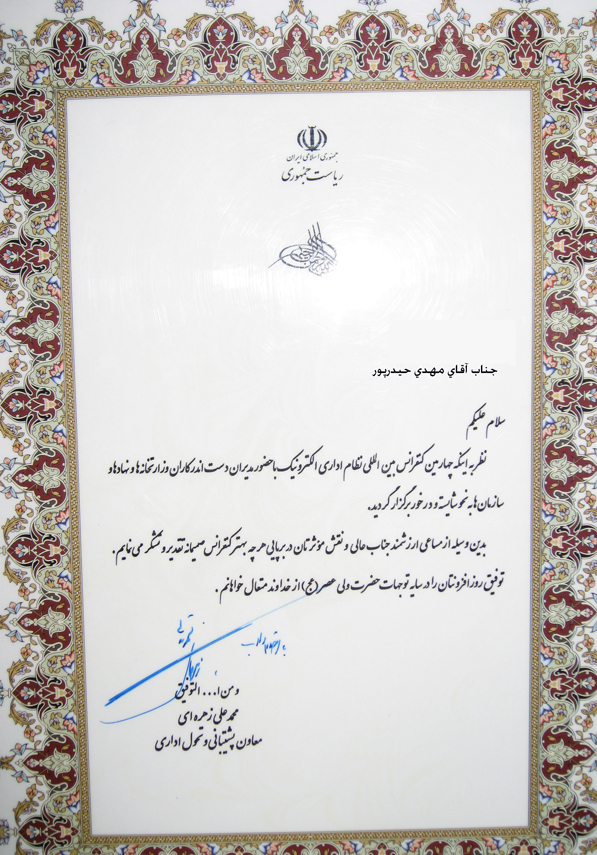 جمهوری اسلامی ایران
ریاست جمهوری
جناب آقاي مهدي حيدرپور
سلام علیکم
نظر به اینکه چهارمین کنفرانس بین المللی نظام اداری الکترونیک با حضور مدیران دست اندرکاران وزارتخانه ها و نهادها و
سازمان ها به نحو شایسته و در خور برگزار گردید.
بدین وسیله از مساعی ارزشمند جناب عالی و نقش مؤثرتان در برپایی هر چه بهتر کنفرانس صمیمانه تقدیر و تشکر می نمایم.
توفیق روز افزونتان را در سایه توجهات حضرت ولی عصر (عج) از خداوند متعال خواهانم.
و من ا... التوفیق
محمد علی زهره ای
معاون پشتیبانی و تحول اداری